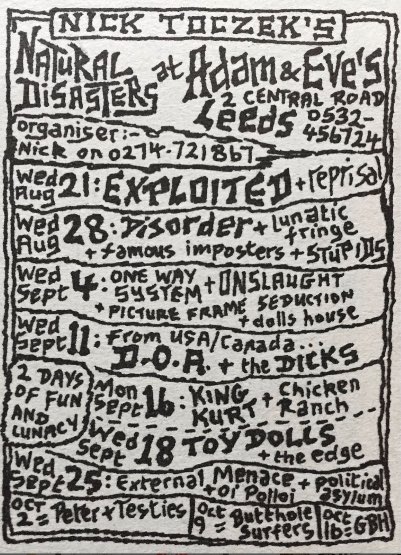 NICK TOCZEK'S
NATURAL DISASTERS at Adam & Eve's
2 CENTRAL ROAD
Leeds 0532-456724
organiser:-
Nick on 0274-721867
Wed Aug 21: EXPLOITED + reprisal
Wed Aug 28: Disorder + Lunatic fringe
+ famous imposters + STUPIDS
Wed Sept 4: ONE WAY SYSTEM + ONSLAUGHT
+ PICTURE FRAME SEDUCTION
+ dolls house
Wed Sept 11: From USA/Canada...
D.O.A. + the DICKS
2 DAYS OF FUN AND LUNACY
Mon Sept 16: KING KURT + Chicken Ranch
Wed Sept 18 TOY DOLLS + the edge
Wed Sept 25: External Menace + political asylum
+ Oi Polloi
Oct 2 = Peter + Testies
Oct 9 = Butthole Surfers
Oct 16 = GBH